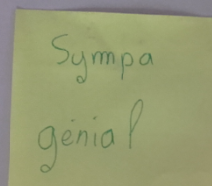 Sympa
génial